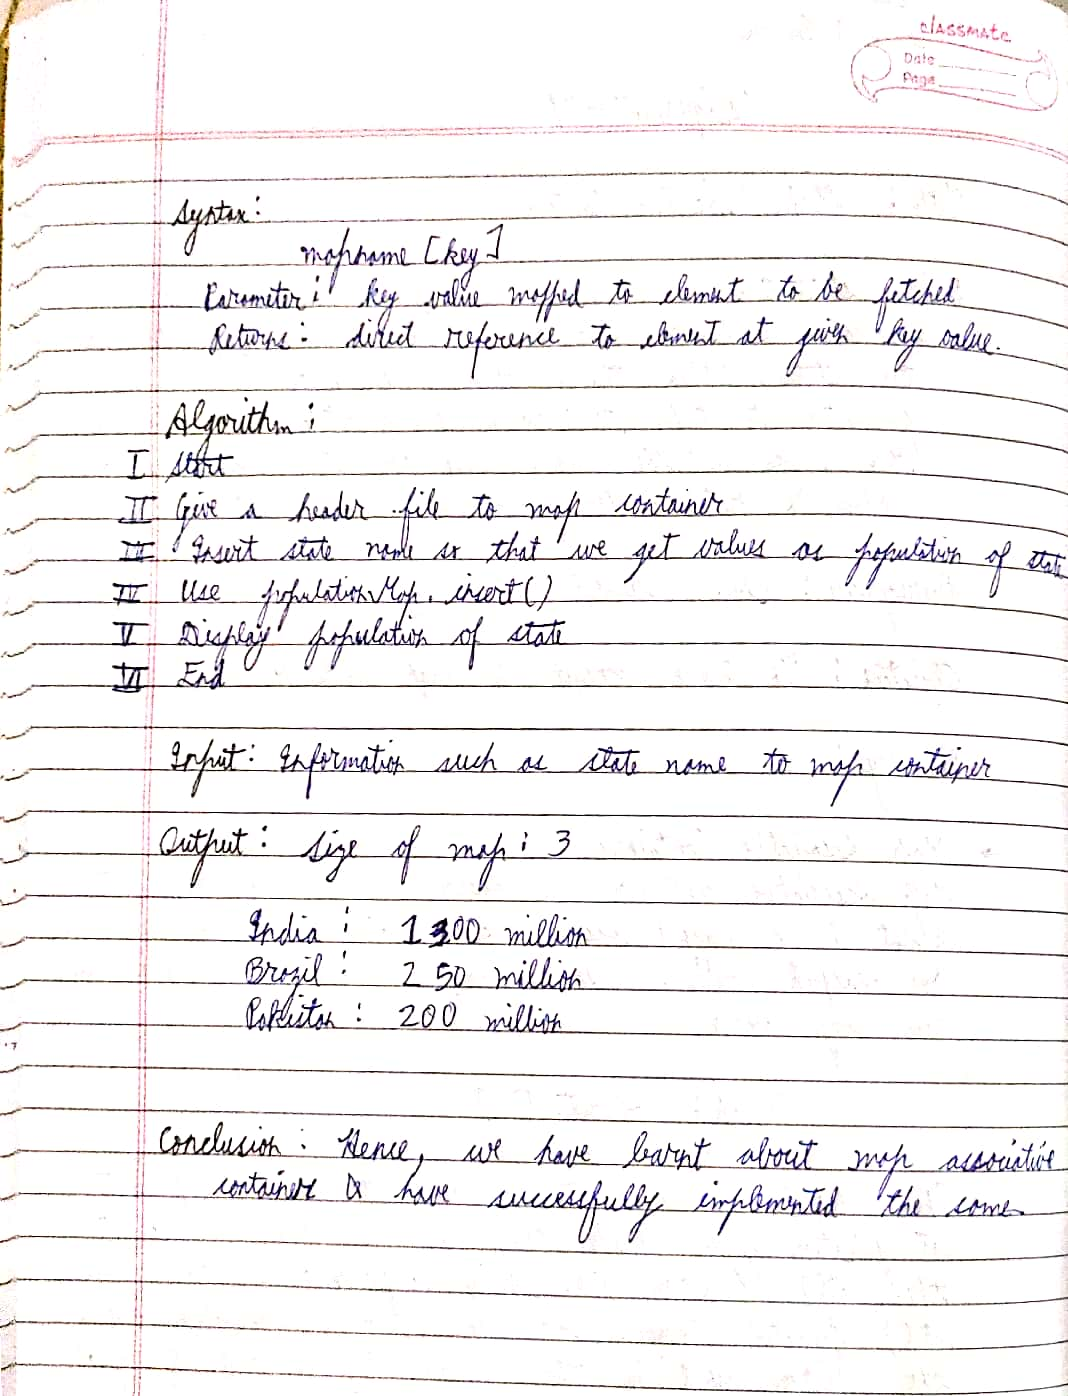 classmate
Date
Page
Syntax:
mapname [key]
Parameter: key value mapped to element to be fetched
Returns: direct reference to element at given key value.
Algorithm:
I Start
II Give a header file to map container
III Insert state name so that we get values as population of state
IV Use populationMap.insert()
V Display population of state
VI End
Input: Information such as state name to map container
Output: Size of map: 3
India: 1300 million
Brazil: 250 million
Pakistan: 200 million
Conclusion: Hence, we have learnt about map associative
containers & have successfully implemented the same.